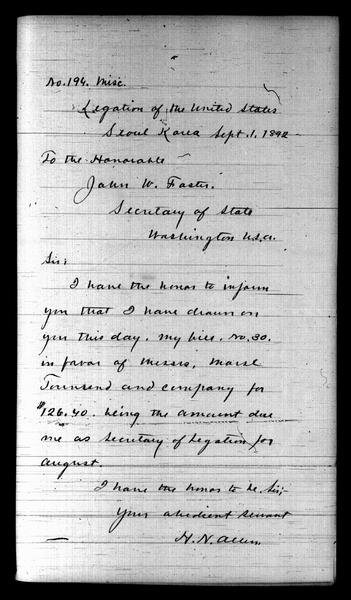 No. 194. Misc.
Legation of the United States
Seoul Korea Sept. 1. 1892
To the Honorable
John W. Foster.
Secretary of State
Washington U.S.A.
Sir;
I have the honor to inform
you that I have drawn on
you this day. my bill. No. 30.
in favor of Messrs, Morse
Townsend and company for
$126.40. being the amount due
me as Secretary of Legation for
August.
I have the honor to be, Sir;
Your obedient servant
H. N. Allen.